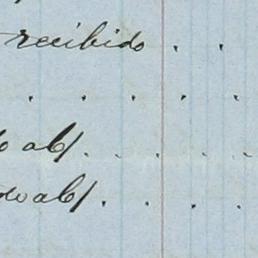 recibido . .
. . . . .
o abl. . . . .
do abl. . . .